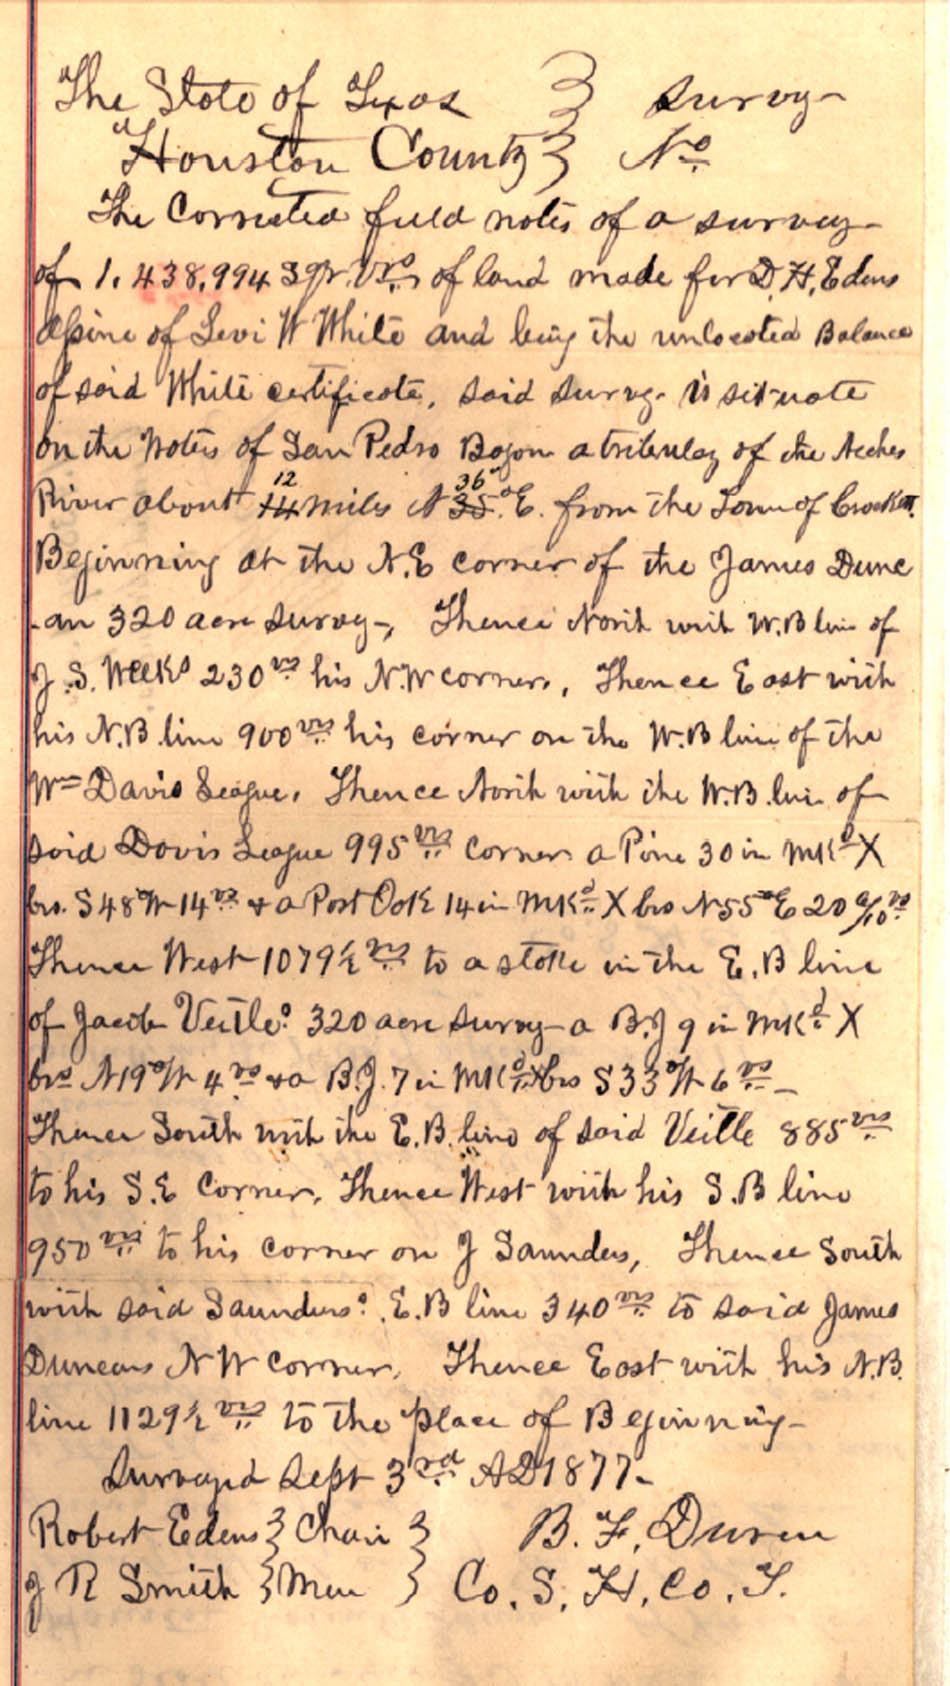 The State of Texas } Survey
Houston County } No
The Corrected field notes of a survey
of 1.438,994 Sqr Vrs of land made for D. H. Edens
assine of Levi W White and being the unlocated Balance
of said White certificate, said survey is situate
on the Waters of San Pedro Bayou a tributary of the Neches
River about 12 14 miles N 36° 35°. E. from the Town of Crockett.
Beginning at the N.E corner of the James Dunc
-an 320 acre survey, Thence North with W.B line of
J. S. Weeks 230 vrs his N.W corner, Thence East with
his N.B line 900 vrs his corner on the W.B line of the
Wm Davis League. Thence North with the W.B. line of
said Davis League 995 vrs corner a Pine 30 in MKd X
brs. S 48° W 14 vrs & a Post Oak 14 in MKd X brs N 55° E 20 vrs
Thence West 1079½ vrs to a stake in the E. B line
of Jacob Veitles 320 acre survey a B.J 9 in MKd X
brs N 19° W 4 vrs & a B.J. 7 in MKd X brs S 33° W 6 vrs
Thence South with the E.B. line of said Veitle 885 vrs
to his S.E Corner, Thence West with his S.B line
950 vrs to his corner on J Saunders, Thence South
with said Saunders. E.B line 340 vrs to said James
Duncans N W corner, Thence East with his N.B.
line 1129½ vrs to the place of Beginning
Surveyed Sept 3rd AD 1877
Robert Edens } Chain } B. F. Duren
J R Smith } Men } Co. S. H. Co. T.